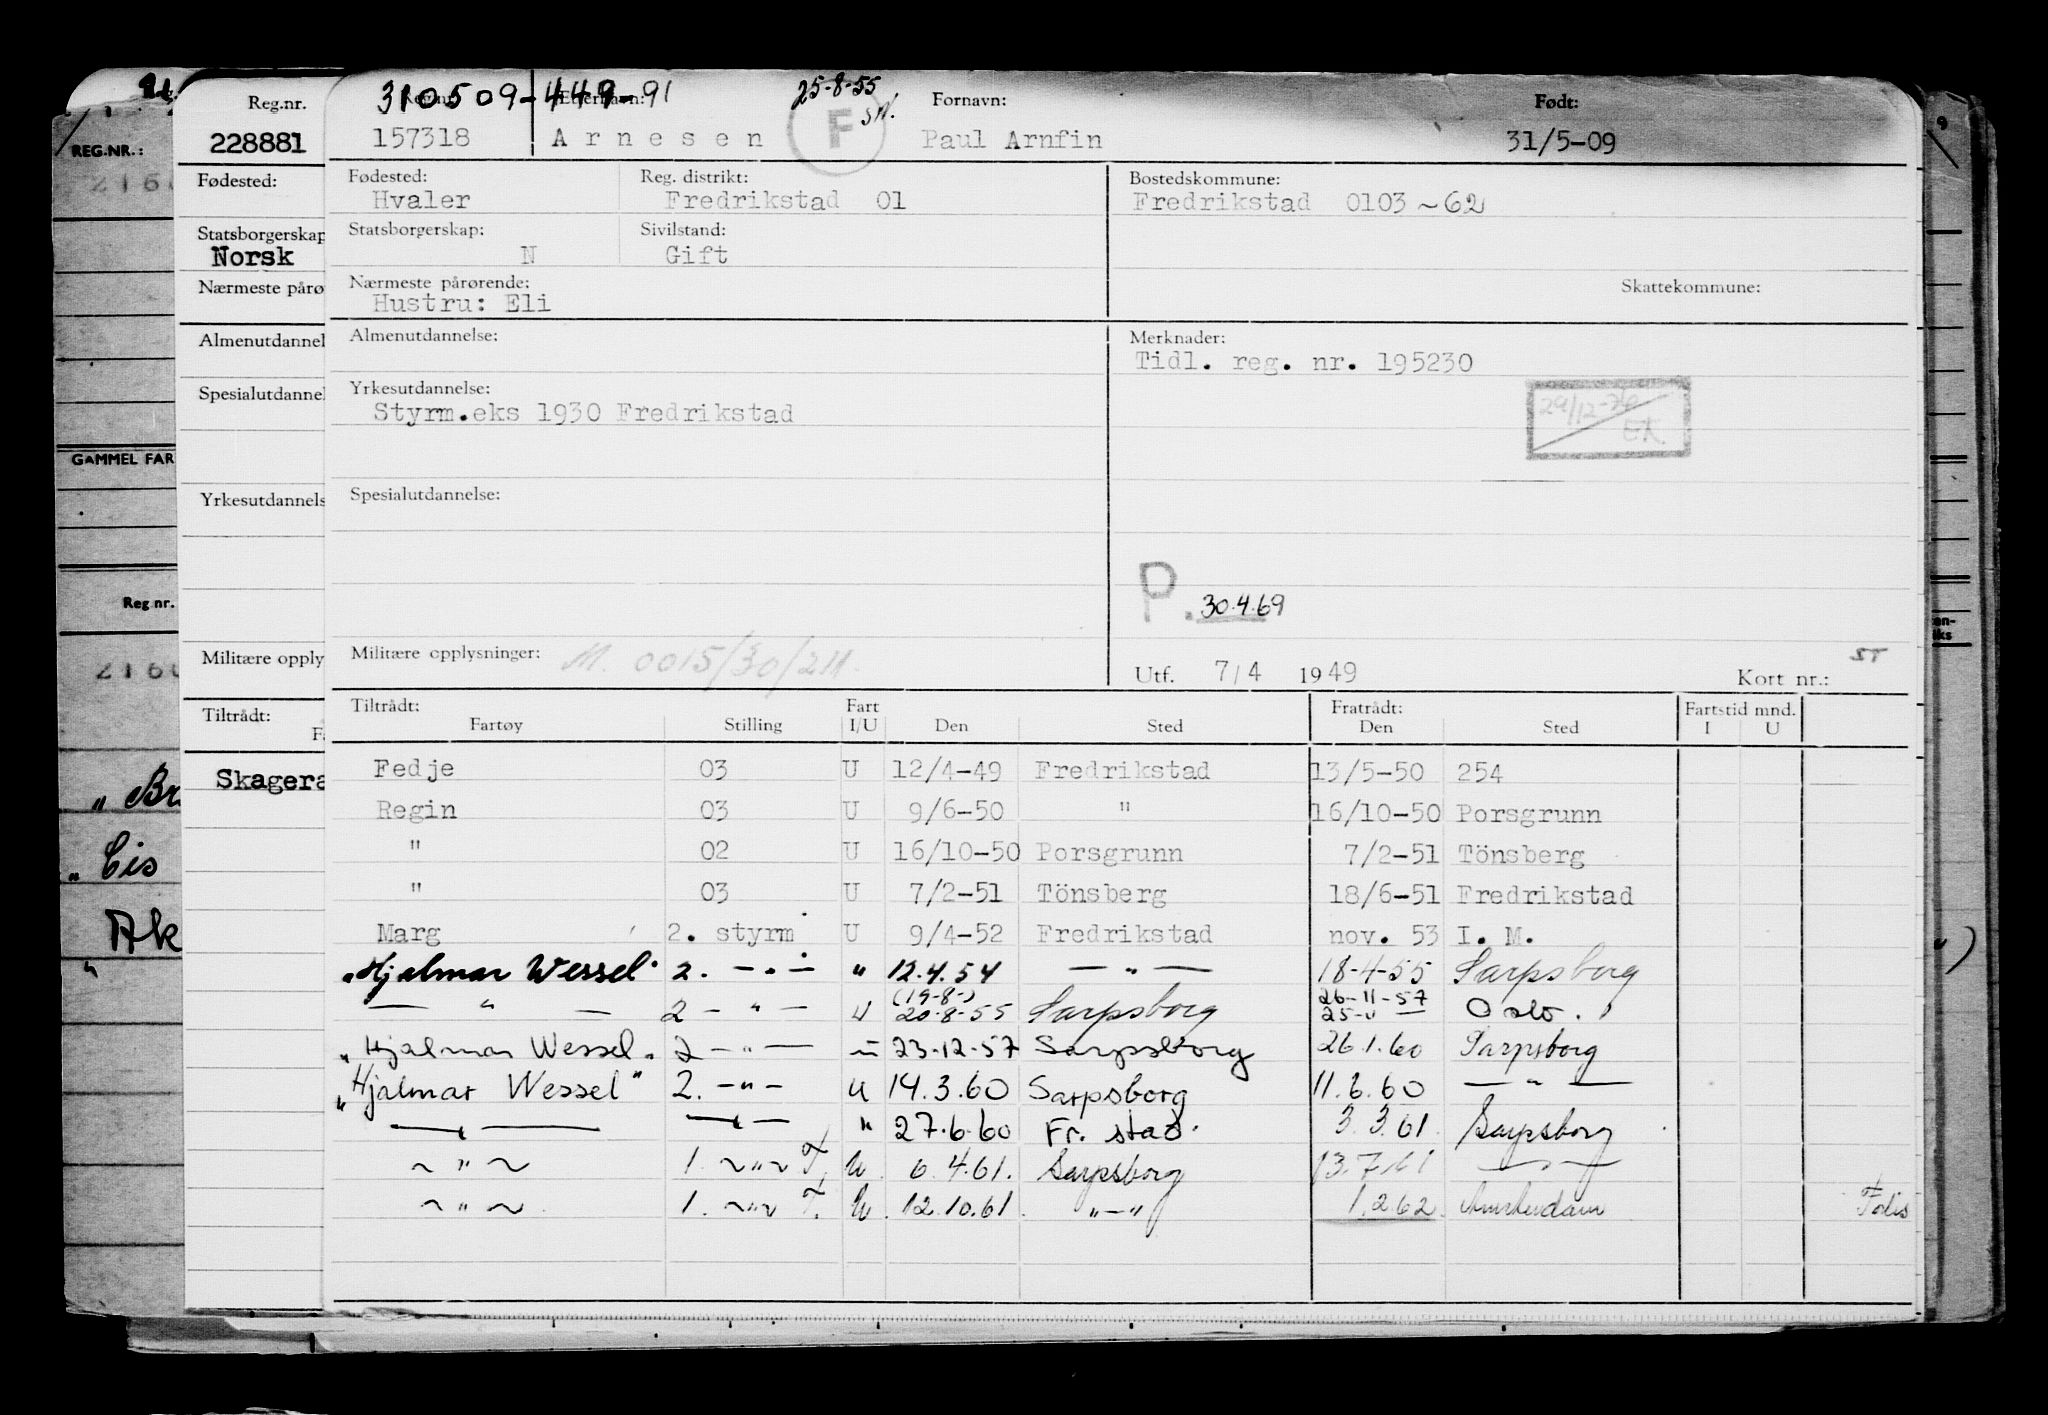 310509-449-91 25-8-55
Reg.nr. Etternavn: F Fornavn: Født:
228881 157318 Arnesen Paul Arnfin 31/5-09
REG.NR.:
Fødested: Fødested: Reg. distrikt: Bostedskommune:
Hvaler Fredrikstad 01 Fredrikstad 0103 ~ 62
Statsborgerskap Statsborgerskap: Sivilstand:
Norsk N Gift
Nærmeste pårø Nærmeste pårørende: Skattekommune:
Hustru: Eli
Almenutdannel Almenutdannelse: Merknader:
Tidl. reg. nr. 195230
Spesialutdannel Yrkesutdannelse:
Styrm.eks 1930 Fredrikstad
29/12-76 EK.
GAMMEL FAR
Yrkesutdannels Spesialutdannelse:
Reg nr.
P. 30.4.69
Militære opply Militære opplysninger: M. 0015/30/211.
Utf. 7/4 1949 Kort nr.: ST
Tiltrådt: Tiltrådt: Fart Fratrådt: Fartstid mnd.
Fartøy Stilling I/U Den Sted Den Sted I U
Skagera Fedje 03 U 12/4-49 Fredrikstad 13/5-50 254
„ Br Regin 03 U 9/6-50 " 16/10-50 Porsgrunn
„ Cis " 02 U 16/10-50 Porsgrunn 7/2-51 Tönsberg
" 03 U 7/2-51 Tönsberg 18/6-51 Fredrikstad
Ak Marg 2. styrm U 9/4-52 Fredrikstad nov. 53 I. M.
"Hjalmar Wessel" 2. — " — " 12.4.54 — " — 18-4-55 Sarpsborg
— " — 2 — " — U (19-8-) 20-8-55 Sarpsborg 26-11-57 25-11 Oslo.
"Hjalmar Wessel" 2 — " — 23-12-57 Sarpsborg 26.1.60 Sarpsborg
"Hjalmar Wessel" 2. — " — U 14.3.60 Sarpsborg 11.6.60 — " —
— " — — " — " 27.6.60 Fr. stad. 3.3.61 Sarpsborg
~ " ~ 1. ~ " ~ U. 6.4.61. Sarpsborg 13.7.61 — " —
~ " ~ 1. ~ " ~ U. 12.10.61. " — " 1.2.62 Amsterdam